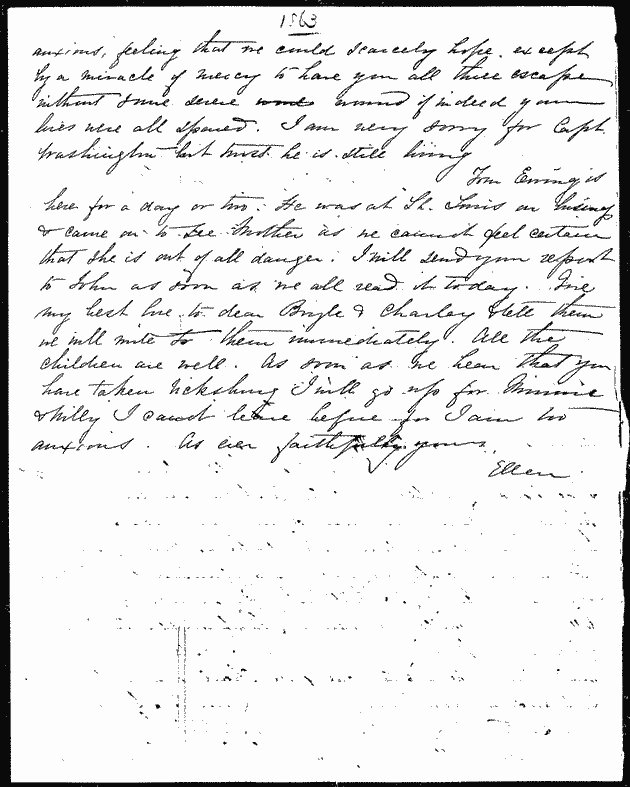 1863
anxious, feeling that we could scarcely hope except
by a miracle of mercy to have you all three escape
without some severe wound if indeed your
lives were all spared. I am very sorry for Capt.
Washington but trust he is still living
Tom Ewing is
here for a day or two. He was at St. Louis on business
& came on to see Mother as we cannot feel certain
that she is out of all danger. I will send your report
to John as soon as we all read it today. Give
my best love to dear Boyle & Charley & tell them
we will write to them immediately. All the
children are well. As soon as we hear that you
have taken Vicksburg I will go up for Minnie
& Willy I cannot leave before for I am too
anxious. As ever faithfully yours,
Ellen